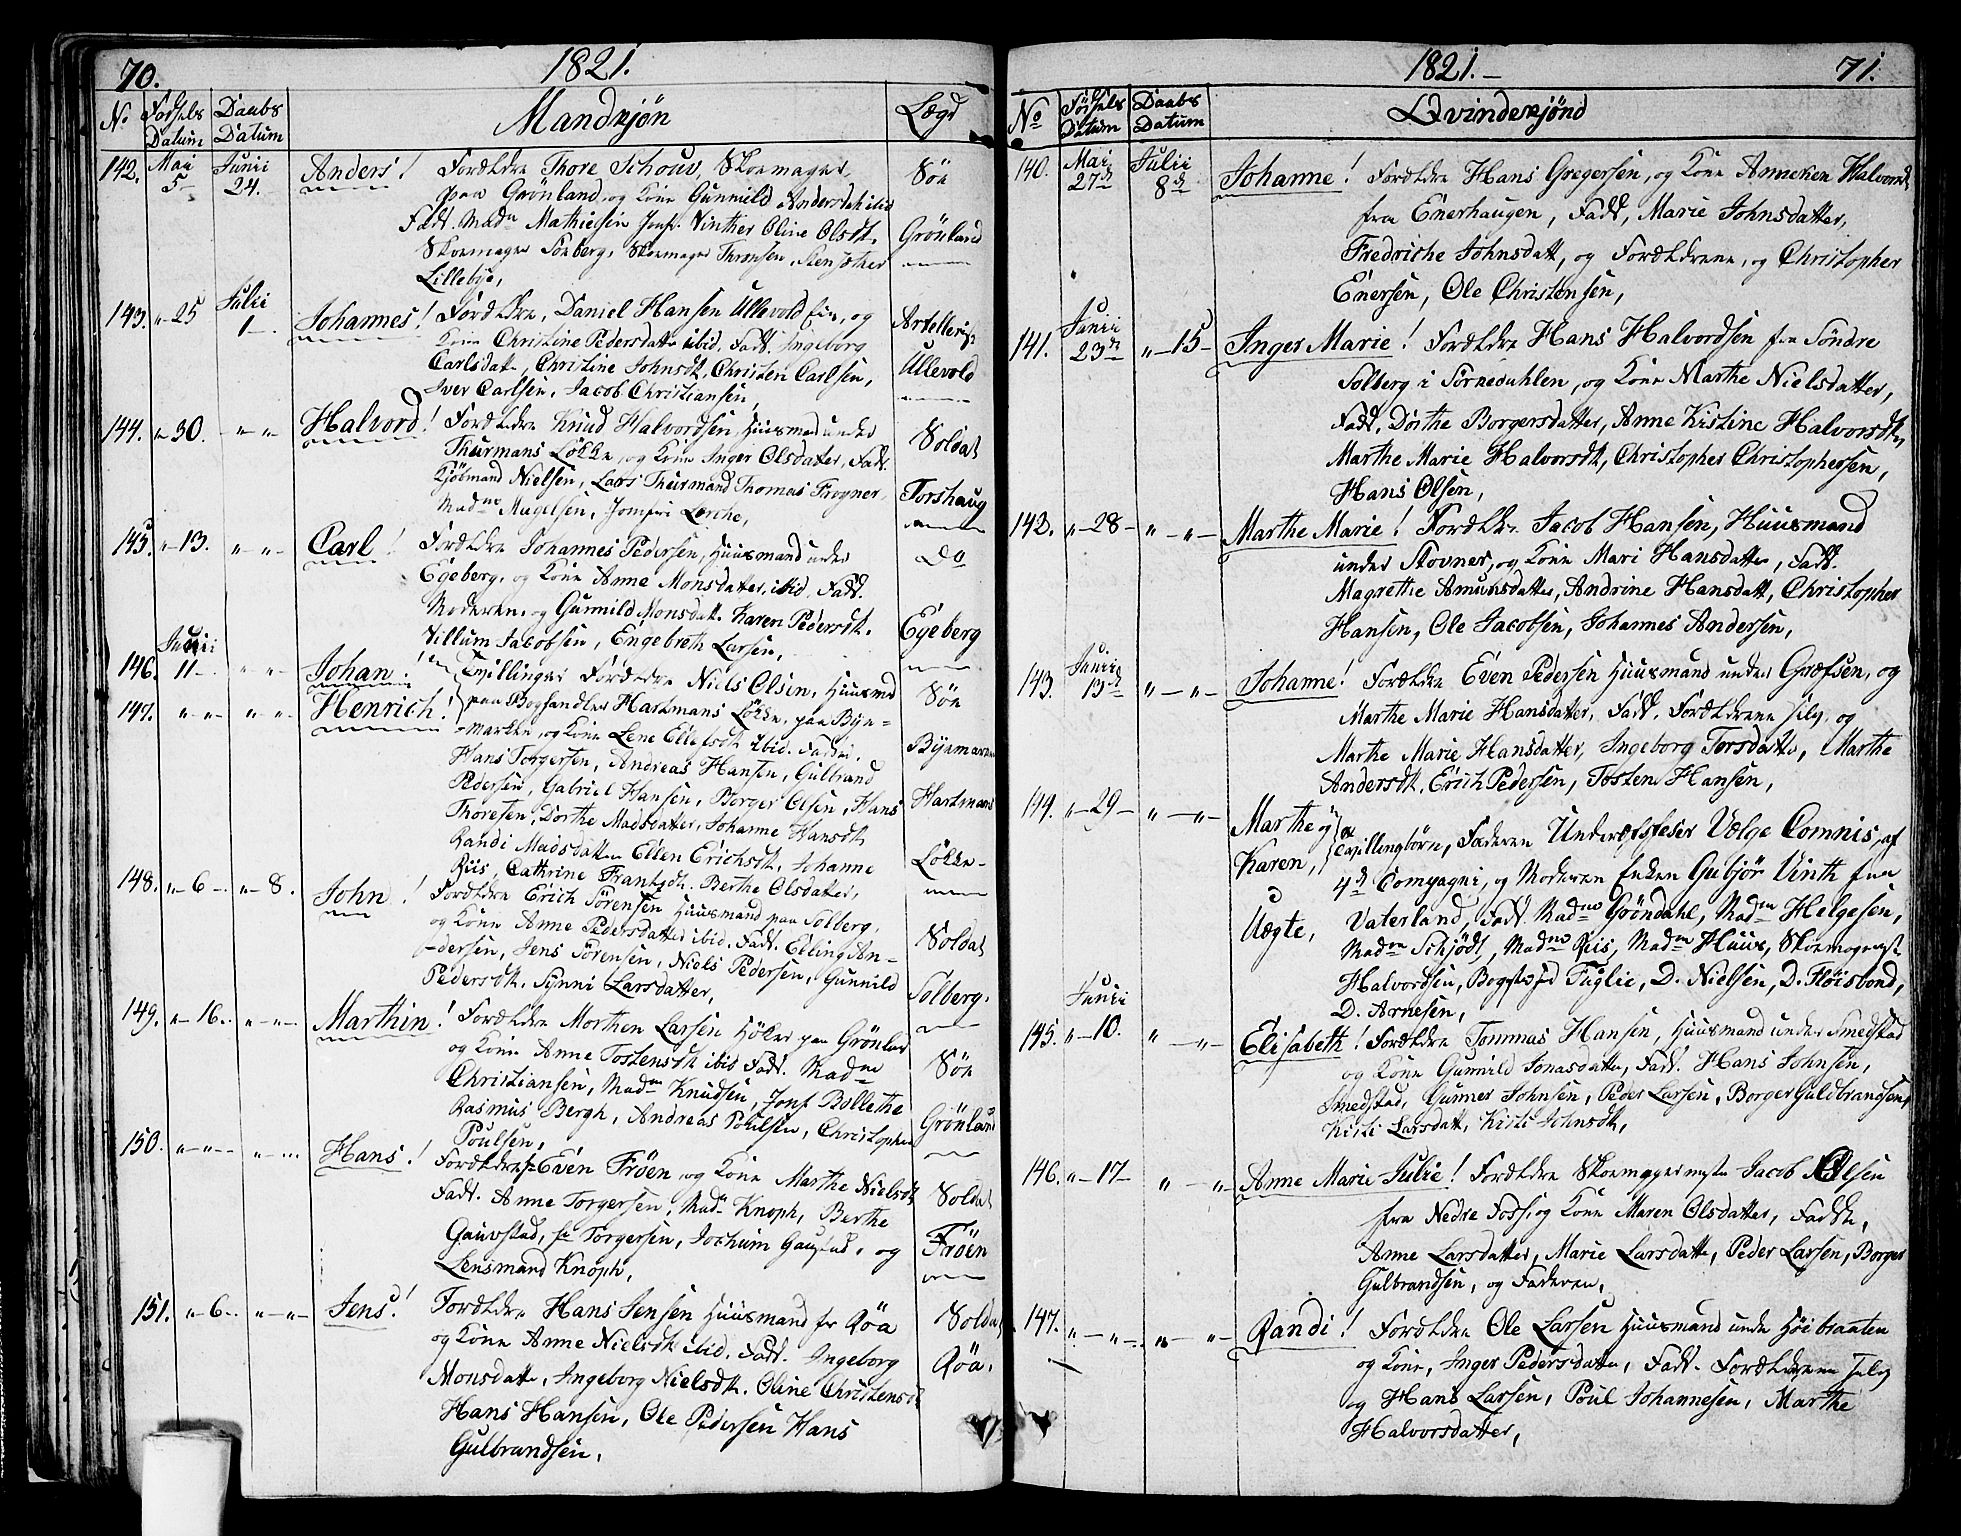 70.
1821.
No
Födsels Datum
Daabs Datum
Mandkjön
Lægd
142. Mai 5 Junii 24. Anders! Forældre Thore Schouv, Skomager Söe
paa Grönland, og Kone Gunnild Andersdatter ibid
Fadd. Madm Mathiesen Jomf. Vinther Oline Olsdt. Grönland
Skomager Torberg, Skomager Thronsen,
Lillebye,
143. " 25 Julii 1 Johannes! Forældre, Daniel Hansen Ullevold Eie, og
Kone Christine Pedersdatter ibid, Fadd. Ingeborg Artelleri
Carlsdatt, Christine Johnsdt, Christen Carlsen, Ullevold
Iver Carlsen, Jacob Christiansen,
144. " 30. " " Halvord! Forældre Knud Halvordsen, Huusmand under
Thurmans Lökke, og Kone Inger Olsdatter, Fadd. Soldat
Kjöbmand Nielsen, Lars Thurmand Thomas Frogner, Torshaug
Madme Mugelsen, Jomfru Lerche,
145. " 13. " " Carl! Forældre Johannes Pedersen, Huusmand under Do
Egeberg, og Kone Anne Monsdatter, ibid, Fadd.
Moderen, og Gunnild Monsdatt. Karen Pedersdt. Egeberg
Villum Jacobsen, Engebreth Larsen,
146. Junii 11 " " Johan! Tvillinger Forældre Niels Olsen, Huusmd Söe
147. " " " " Henrich! paa Boghandler Hartmans Lökke, paa Bye-
marken, og Kone Lene Ellefsdt ibid. Faddere, Byemarken
Hans Torgersen, Andreas Hansen, Gulbrand
Pedersen, Gabriel Hansen, Borger Olsen, Hans Hartmans
Thoresen, Dorthe Madsdatter, Johanne Hansdt
Randi Madsdatter Ellen Erichsdt. Johanne Lökke
Riis, Cathrine Frantzdt. Berthe Olsdatter,
148. " 6 " 8. John! Forældre Erich Sörensen Huusmand paa Solberg,
og Kone Anne Pedersdatter ibid. Fadd. Elling An- Soldat
dersen, Jens Sörensen, Niels Pedersen, Gunnild
Pedersdt. Synni Larsdatter, Solberg.
149. " 16. " " Marthin! Forældre Morthen Larsen Höker paa Grönland
og Kone Anne Tostensdt ibid Fadd. Madme Söe
Christiansen, Madm Knudsen, Jomf Bollethe
Rasmus Bergh, Andreas Poulsen, Christopher Grönland
Poulsen,
150. " " " " Hans! Forældre Even Fröen, og Kone Marthe Nielsdt Soldat
Fadd. Anne Torgersen, Mad Knoph, Berthe
Gauvstad, Torgersen, Jochum Gaustad, og Fröen
Lensmand Knoph,
151. " 6 " " Jens! Forældre Hans Jensen Huusmand fr Röa Soldat
og Kone Anne Nielsdt ibid. Fadd. Ingeborg Röa,
Monsdatt, Ingeborg Nielsdt. Oline Christensdt
Hans Hansen, Ole Pedersen Hans
Gulbrandsen,
1821.
71.
No
Födsels Datum
Daabs Datum
Qvindeskjönd
140. Mai 27d Julii 8d Johanne! Forældre Hans Gregersen, og Kone Anneken Halvordt
fra Enerhaugen, Fadd, Marie Johnsdatter,
Fredriche Johnsdatt, og Forældrene, og Christopher
Enersen, Ole Christensen,
141. Junii 23d " 15 Inger Marie! Forældre Hans Halvordsen fra Söndre
Solberg i Sörnedahlen, og Kone Marthe Nielsdatter,
Fadd, Dorthe Borgersdatter, Anne Kistine Halvorsdt,
Marthe Marie Halvorsdt, Christopher Christophersen,
Hans Olsen,
142. " 28 " " Marthe Marie! Forældre Jacob Hansen, Huusmand
under Stovner, og Kone Mari Hansdatter, Fadd.
Magrethe Amunsdatter, Andrine Hansdatt, Christopher
Hansen, Ole Jacobsen, Johannes Andersen,
143. Junii 13d " " Johanne! Forældre Even Pedersen Huusmand under Græfsen, og
Marthe Marie Hansdatter, Fadd, Forældrene selv, og
Marthe Marie Hansdatter, Ingeborg Torsdatter, Marthe
Andersdt, Erich Pedersen, Tosten Hansen,
144. " 29 " " Marthe og
Karen, Tvillingbörn, Faderen Underofficier Vælge Comnis, af
4d Compagni, og Moderen Enken Gubjör Vinth fra
Uægte, Vaterland, Fadd. Madme Gröndahl, Madm Helgesen,
Madm Schjödt, Madme Riis, Madm Huus, Skomagermst.
Halvordsen, Fuglie, D. Nielsen, D. Flöisbond,
D. Arnesen,
145. Junii " 10. " " Elisabeth! Forældre Tommas Hansen, Huusmand under Smedstad
og Kone Gunnild Jonasdatter, Fadd. Hans Johnsen,
Smedstad, Gunner Johnsen, Peder Larsen, Borger Guldbrandsen,
Kisti Larsdatt, Kisti Johnsdt,
146. " 17 " " Anne Marie Julie! Forældre Skomagermstr Jacob Olsen
fra Nedre Foss, og Kone Maren Olsdatter, Faddr,
Anne Larsdatter, Marie Larsdatt, Peder Larsen, Borger
Gulbrandsen, og Faderen,
147. " " " " Randi! Forældre Ole Larsen Huusmand under Höibraaten
og Kone, Inger Pedersdatter, Fadd. Forældrene selv
og Hans Larsen, Poul Johannesen, Marthe
Halvorsdatter,